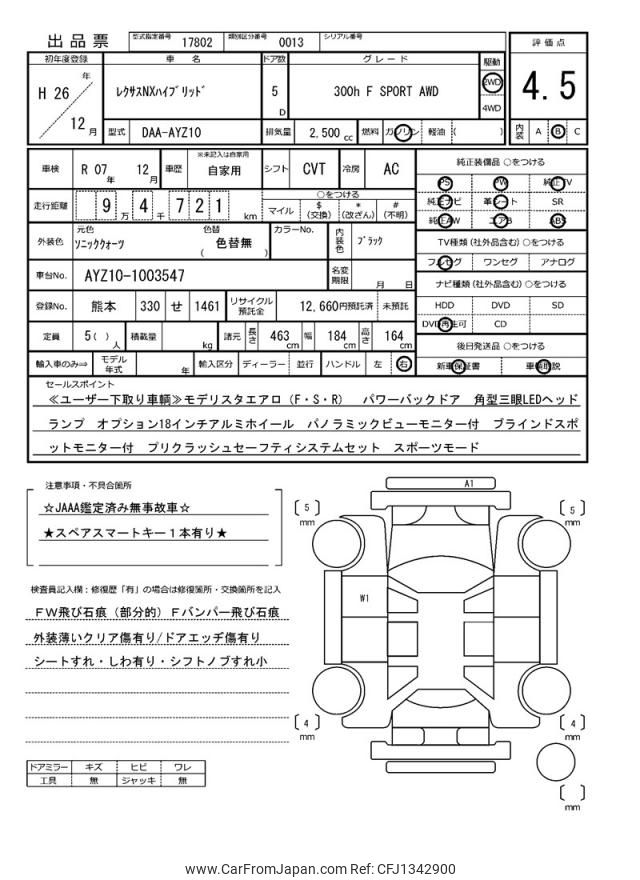 出品票
型式指定番号 17802 類別区分番号 0013 シリアル番号
評価点
4.5
内装 A B C
初年度登録 車名 ドア数 グレード 駆動
H 26年 12月 レクサスNXハイブリッド 5D 300h F SPORT AWD 2WD 4WD
型式 DAA-AYZ10 排気量 2,500cc 燃料 ガソリン 軽油 ( )
車検 R 07年 12月 車歴 ※未記入は自家用 自家用 シフト CVT 冷房 AC
走行距離 9万4千721km ○をつける
マイル $(交換) *(改ざん) #(不明)
外装色 元色 ソニッククォーツ 色替 (色替無) カラーNo. 内装色 ブラック
車台No. AYZ10-1003547 名変期限 月 日
登録No. 熊本 330 せ 1461 リサイクル預託金 12,660円預託済 未預託
定員 5( )人 積載量 kg 諸元 長さ 463cm 幅 184cm 高さ 164cm
輸入車のみ⇒ モデル年式 年 輸入区分 ディーラー 並行 ハンドル 左 右
純正装備品 ○をつける
PS PW 純正TV
純正ナビ 革シート SR
純正AW エアB ABS
TV種類(社外品含む)○をつける
フルセグ ワンセグ アナログ
ナビ種類(社外品含む)○をつける
HDD DVD SD
DVD再生可 CD
後日発送品 ○をつける
新車保証書 車輌取説
セールスポイント
≪ユーザー下取り車輌≫モデリスタエアロ(F・S・R) パワーバックドア 角型三眼LEDヘッド
ランプ オプション18インチアルミホイール パノラミックビューモニター付 ブラインドスポ
ットモニター付 プリクラッシュセーフティシステムセット スポーツモード
注意事項・不具合箇所
☆JAAA鑑定済み無事故車☆
★スペアスマートキー1本有り★
検査員記入欄:修復歴「有」の場合は修復箇所・交換箇所を記入
FW飛び石痕(部分的)Fバンパー飛び石痕
外装薄いクリア傷有り/ドアエッヂ傷有り
シートすれ・しわ有り・シフトノブすれ小
ドアミラー キズ ヒビ ワレ
工具 無 ジャッキ 無
A1
〔5〕mm 〔5〕mm
W1
〔4〕mm 〔4〕mm
〔 〕mm
www.CarFromJapan.com Ref: CFJ1342900